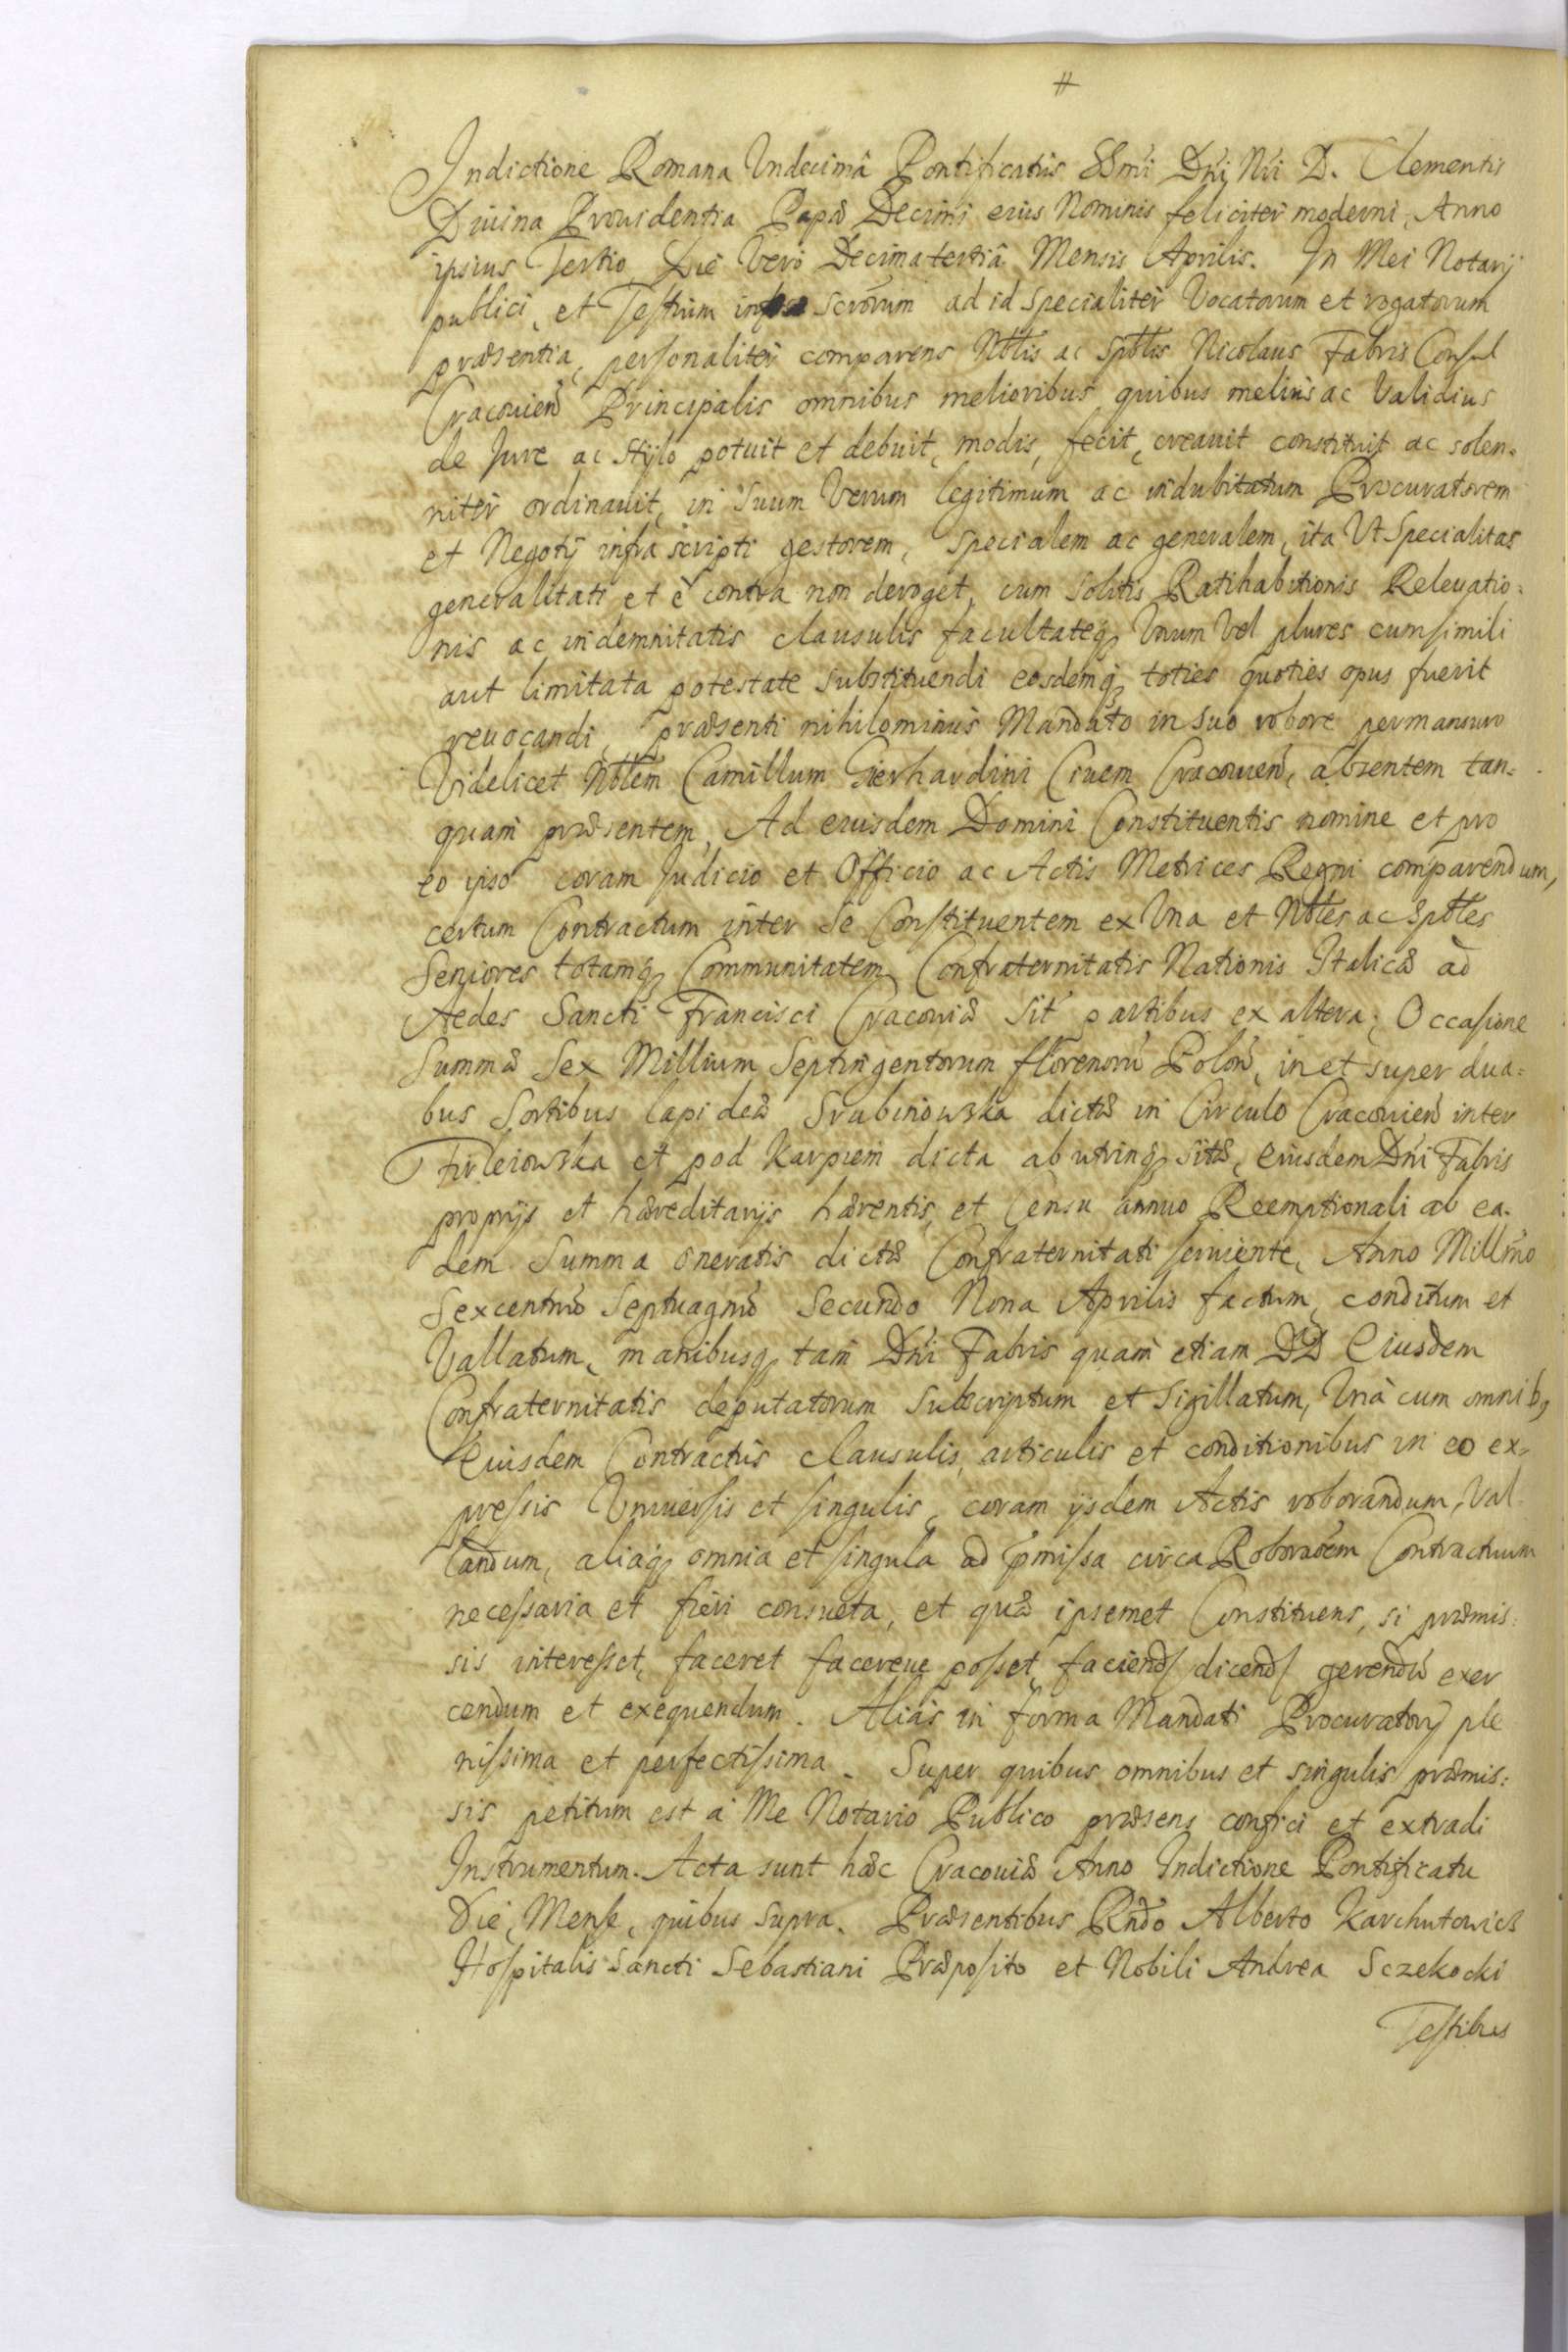 #
Indictione Romana Undecimâ Pontificatûs SSmi Dñi Nri D. Clementis
Diuina Prouidentia Papæ Decimi eius Nominis feliciter moderni, Anno
ipsius Tertio Die Verò Decimatertiâ Mensis Aprilis. In Mei Notarij
publici, et Testium infra scrorum ad id specialiter Vocatorum et rogatorum
præsentia, personaliter comparens Nbtlis ac Spbtlis Nicolaus Fabris Consul
Cracouien Principalis omnibus melioribus quibus meliùs ac Validius
de Jure ac Stylo potuit et debuit, modis, fecit, creauit constituit ac solen=
niter ordinauit, in Suum Verum legitimum ac indubitatum Procuratorem
et Negotij infra scripti gestorem, Specialem ac generalem, ita Ut Specialitas
generalitati et è contra non deroget, cum Solitis Ratihabitionis Releuatio=
nis ac indemnitatis clausulis facultateq3 Unum Vel plures cum simili
aut limitata potestate Substituendi eosdemq3 toties quoties opus fuerit
reuocandi, præsenti nihilominùs Mandato in suo robore permansuro
Videlicet Nbtlem Camillum Gierhardini Ciuem Cracouien, absentem tan=
quam præsentem, Ad eiusdem Domini Constituentis nomine et pro
eo ipso coram Judicio et Officio ac Actis Metrices Regni comparendum,
certum Contractum inter Se Constituentem ex Una et Nbtles ac Spbtles
Seniores totamq3 Communitatem Confraternitatis Nationis Italicæ ad
Aedes Sancti Francisci Cracouiæ Sit partibus ex altera; Occasione
Summæ Sex Millium Septingentorum florenorũ Polon, in et super dua=
bus Sortibus lapideæ Srubinowska dictæ in Circulo Cracouien inter
Firleiowska et pod Karpiem dicta ab utrinq3 sitæ, eiusdem Dñi Fabris
proprijs et hæreditarijs hærentis, et Censu annuo Reemptionali ab ea=
dem Summa oneratis dictæ Confraternitati seruiente, Anno Millmo
Sexcentmo Septuagmo Secundo Nona Aprilis factum, conditum et
Vallatum, manibusq3 tam Dñi Fabris quam etiam DD Eiusdem
Confraternitatis deputatorum subscriptum et Sigillatum, Unà cum omnib3
Eiusdem Contractûs clausulis, articulis et conditionibus in eo ex=
pressis Uniuersis et singulis, coram ijsdem Actis roborandum, Val
landum, aliaq3 omnia et singula ad pmissa circa Roboraoem Contractuum
necessaria et fieri consueta, et quæ ipsemet Constituens, si præmis=
sis interesset, faceret facereue posset, faciend dicend gerendũ exer
cendum et exequendum. Aliàs in forma Mandati Procuratorij ple
nissima et perfectissima. Super quibus omnibus et singulis præmis=
sis petitum est à Me Notario Publico præsens confici et extradi
Instrumentum. Acta sunt hæc Cracouiæ Anno Indictione Pontificatu
Die, Mense, quibus Supra. Præsentibus Rndo Alberto Karchutowicz
Hospitalis Sancti Sebastiani Præposito et Nobili Andrea Sczekocki
Testibus